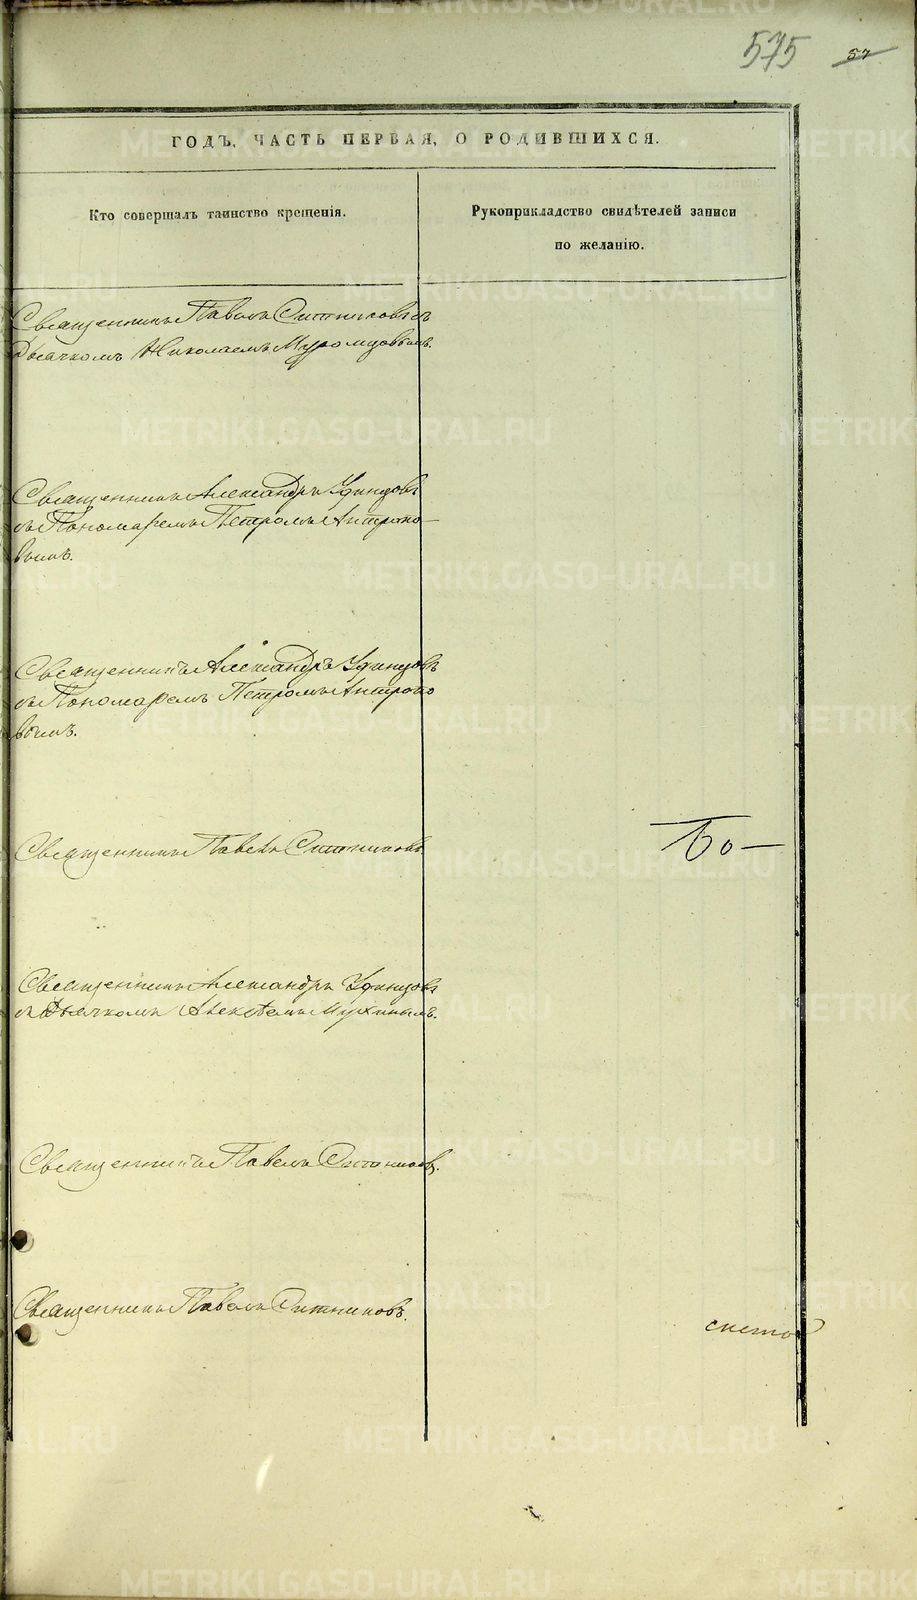 575 57
ГОДЪ, ЧАСТЬ ПЕРВАЯ, О РОДИВШИХСЯ.
Кто совершалъ таинство крещенія.
Рукоприкладство свидѣтелей записи
по желанію.
Священникъ Павелъ Ситниковъ съ
Дьячкомъ Николаемъ Муромцовымъ.
Священникъ Александръ Удинцовъ
съ Пономаремъ Петромъ Антропо-
вымъ.
Священникъ Александръ Удинцовъ
съ Пономаремъ Петромъ Антропо
вымъ.
Священникъ Павелъ Ситниковъ
Священникъ Александръ Удинцовъ
съ Дьячкомъ Алексѣемъ Мухинымъ.
Священникъ Павелъ Ситниковъ.
Священникъ Павелъ Ситниковъ.
METRIKI.GASO-URAL.RU